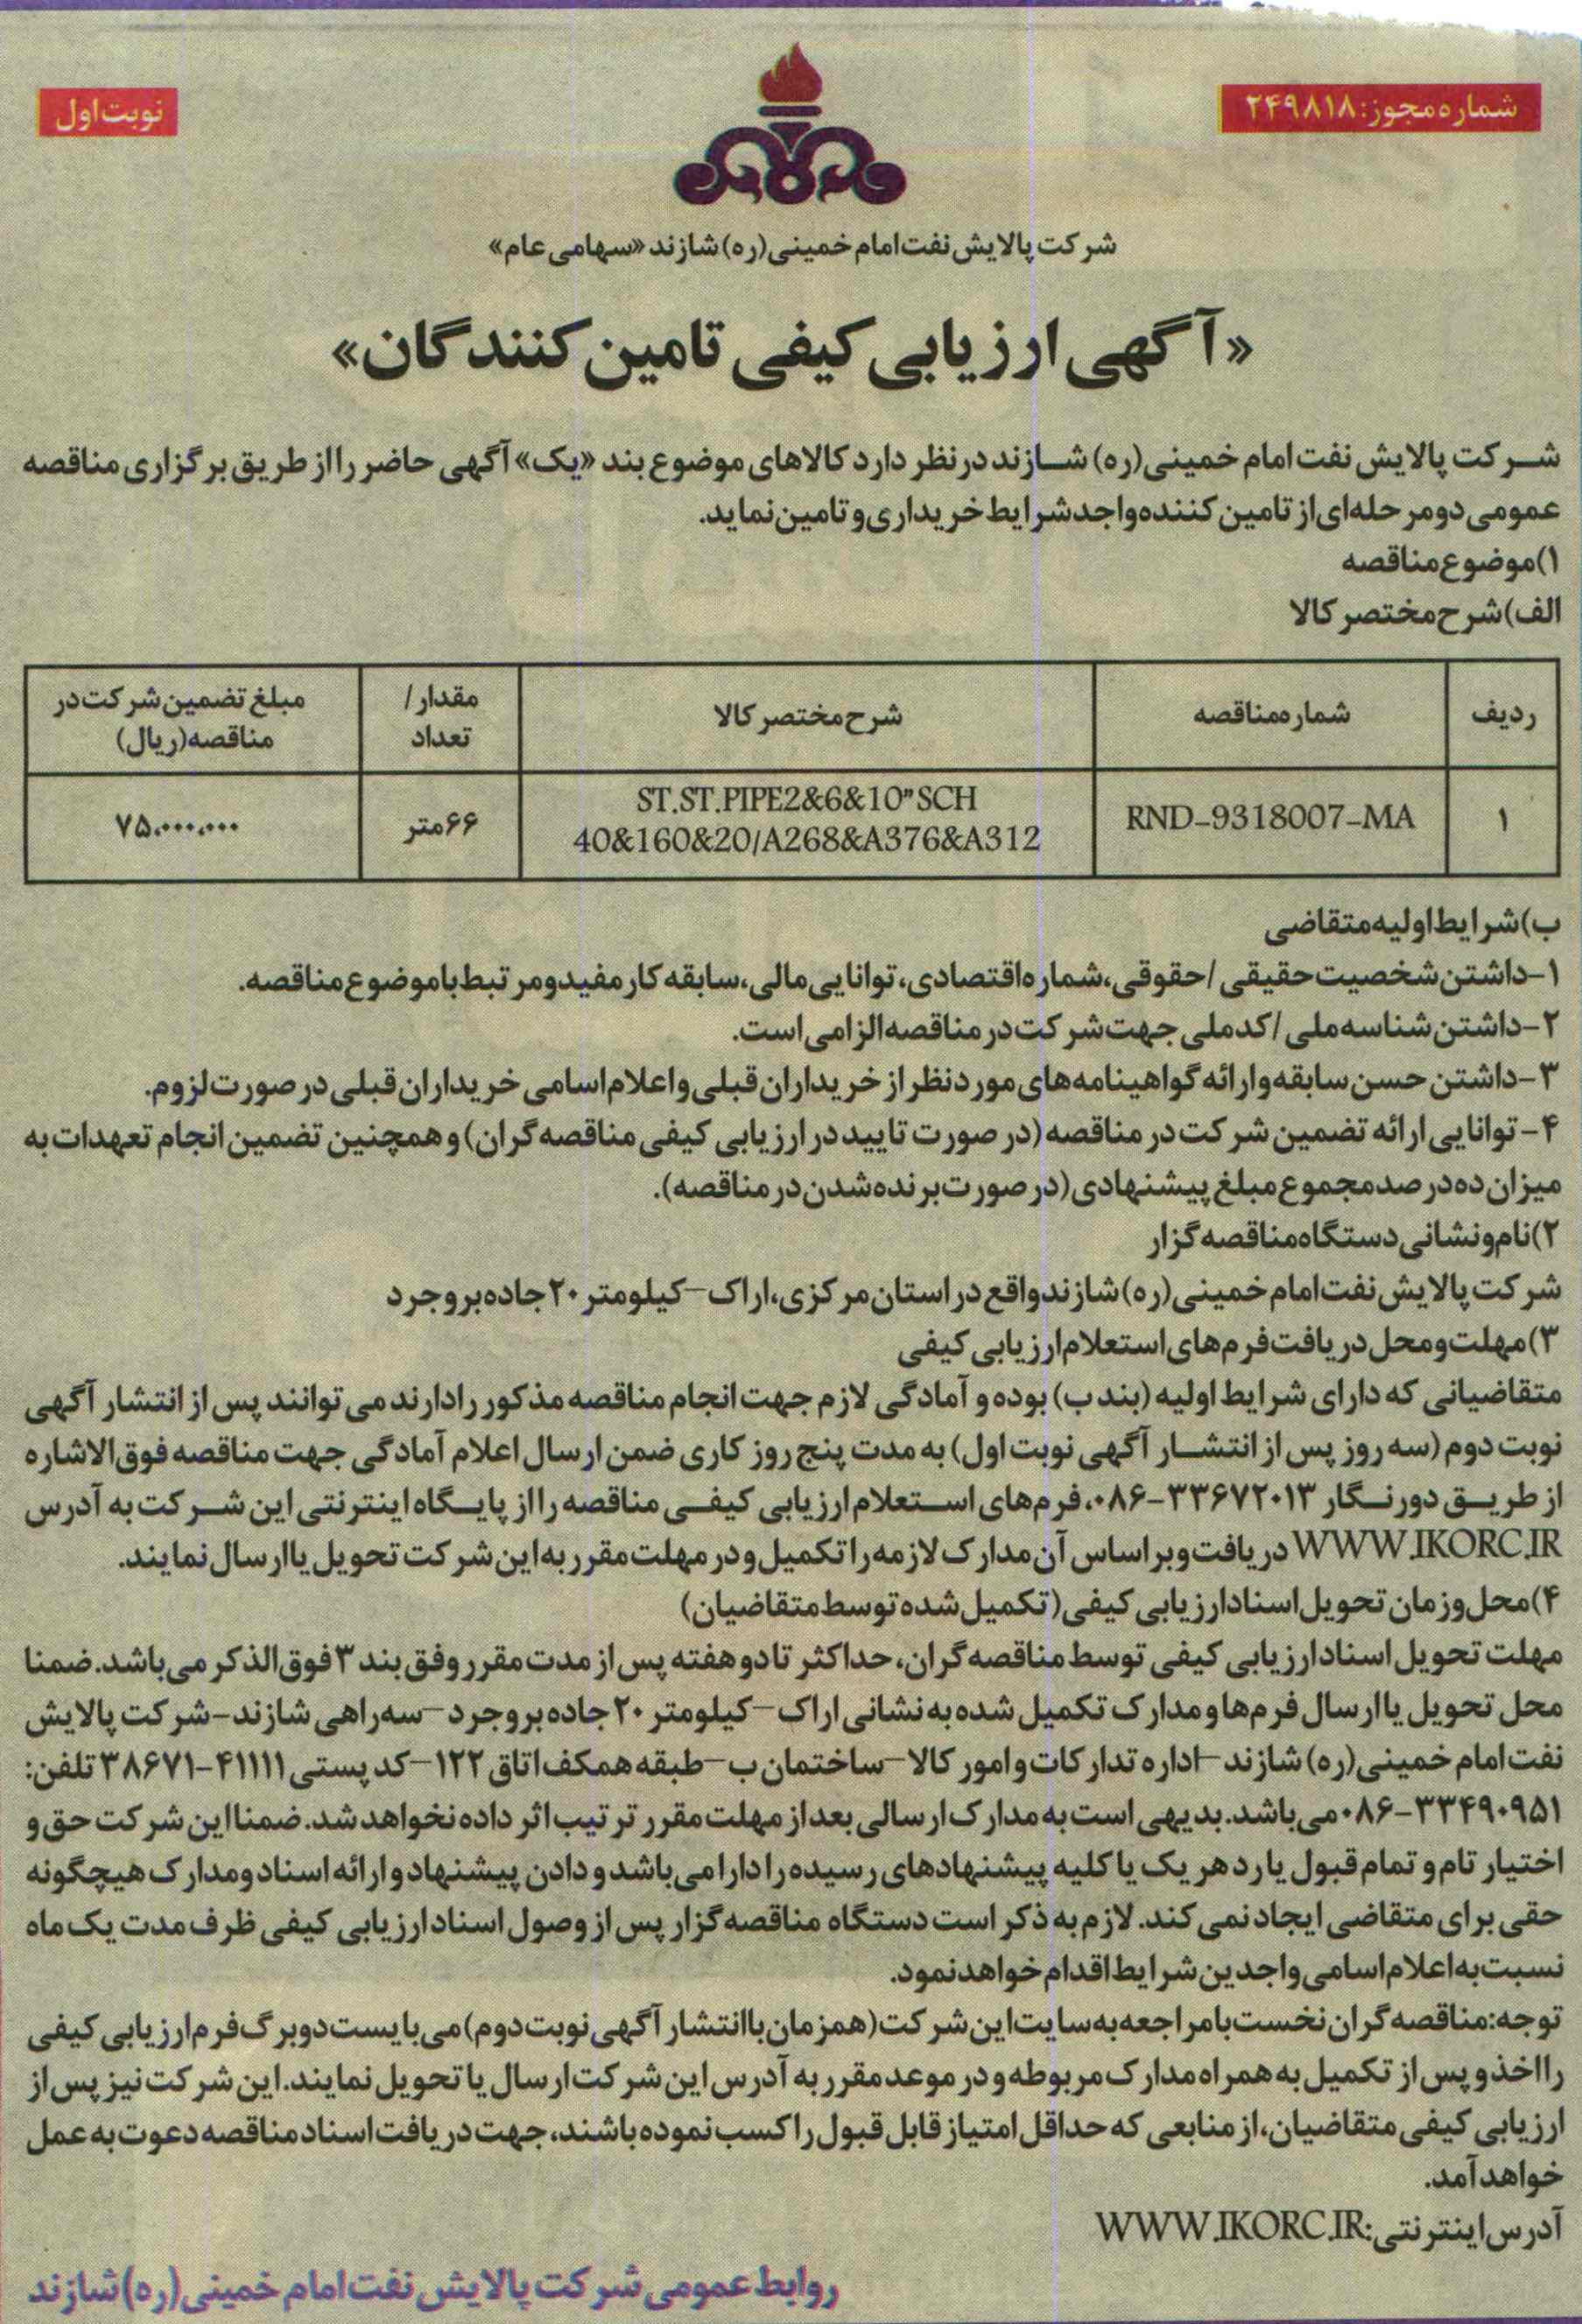 شماره مجوز: ۲۴۹۸۱۸
نوبت اول
شرکت پالایش نفت امام خمینی (ره) شازند «سهامی عام»
«آگهی ارزیابی کیفی تامین کنندگان»
شرکت پالایش نفت امام خمینی (ره) شازند در نظر دارد کالاهای موضوع بند «یک» آگهی حاضر را از طریق برگزاری مناقصه
عمومی دو مرحله‌ای از تامین کننده واجد شرایط خریداری و تامین نماید.
۱) موضوع مناقصه
الف) شرح مختصر کالا
ردیف | شماره مناقصه | شرح مختصر کالا | مقدار / تعداد | مبلغ تضمین شرکت در مناقصه (ریال)
۱ | RND-9318007-MA | ST.ST.PIPE2&6&10”SCH 40&160&20/A268&A376&A312 | ۶۶ متر | ۷۵،۰۰۰،۰۰۰
ب) شرایط اولیه متقاضی
۱- داشتن شخصیت حقیقی / حقوقی، شماره اقتصادی، توانایی مالی، سابقه کار مفید و مرتبط با موضوع مناقصه.
۲- داشتن شناسه ملی / کد ملی جهت شرکت در مناقصه الزامی است.
۳- داشتن حسن سابقه و ارائه گواهینامه‌های مورد نظر از خریداران قبلی و اعلام اسامی خریداران قبلی در صورت لزوم.
۴- توانایی ارائه تضمین شرکت در مناقصه (در صورت تایید در ارزیابی کیفی مناقصه گران) و همچنین تضمین انجام تعهدات به
میزان ده درصد مجموع مبلغ پیشنهادی (در صورت برنده شدن در مناقصه).
۲) نام و نشانی دستگاه مناقصه گزار
شرکت پالایش نفت امام خمینی (ره) شازند واقع در استان مرکزی، اراک - کیلومتر ۲۰ جاده بروجرد
۳) مهلت و محل دریافت فرم‌های استعلام ارزیابی کیفی
متقاضیانی که دارای شرایط اولیه (بند ب) بوده و آمادگی لازم جهت انجام مناقصه مذکور را دارند می توانند پس از انتشار آگهی
نوبت دوم (سه روز پس از انتشار آگهی نوبت اول) به مدت پنج روز کاری ضمن ارسال اعلام آمادگی جهت مناقصه فوق الاشاره
از طریق دورنگار ۳۳۶۷۲۰۱۳-۰۸۶، فرم‌های استعلام ارزیابی کیفی مناقصه را از پایگاه اینترنتی این شرکت به آدرس
WWW.IKORC.IR دریافت و بر اساس آن مدارک لازمه را تکمیل و در مهلت مقرر به این شرکت تحویل یا ارسال نمایند.
۴) محل و زمان تحویل اسناد ارزیابی کیفی (تکمیل شده توسط متقاضیان)
مهلت تحویل اسناد ارزیابی کیفی توسط مناقصه گران، حداکثر تا دو هفته پس از مدت مقرر وفق بند ۳ فوق الذکر می باشد. ضمنا
محل تحویل یا ارسال فرم‌ها و مدارک تکمیل شده به نشانی اراک - کیلومتر ۲۰ جاده بروجرد - سه راهی شازند - شرکت پالایش
نفت امام خمینی (ره) شازند - اداره تدارکات و امور کالا - ساختمان ب - طبقه همکف اتاق ۱۲۲ - کد پستی ۴۱۱۱۱-۳۸۶۷۱ تلفن:
۳۳۴۹۰۹۵۱-۰۸۶ می باشد. بدیهی است به مدارک ارسالی بعد از مهلت مقرر ترتیب اثر داده نخواهد شد. ضمنا این شرکت حق و
اختیار تام و تمام قبول یا رد هر یک یا کلیه پیشنهادهای رسیده را دارا می باشد و دادن پیشنهاد و ارائه اسناد و مدارک هیچگونه
حقی برای متقاضی ایجاد نمی کند. لازم به ذکر است دستگاه مناقصه گزار پس از وصول اسناد ارزیابی کیفی ظرف مدت یک ماه
نسبت به اعلام اسامی واجدین شرایط اقدام خواهد نمود.
توجه: مناقصه گران نخست با مراجعه به سایت این شرکت (همزمان با انتشار آگهی نوبت دوم) می بایست دو برگ فرم ارزیابی کیفی
را اخذ و پس از تکمیل به همراه مدارک مربوطه و در موعد مقرر به آدرس این شرکت ارسال یا تحویل نمایند. این شرکت نیز پس از
ارزیابی کیفی متقاضیان، از منابعی که حداقل امتیاز قابل قبول را کسب نموده باشند، جهت دریافت اسناد مناقصه دعوت به عمل
خواهد آمد.
آدرس اینترنتی: WWW.IKORC.IR
روابط عمومی شرکت پالایش نفت امام خمینی (ره) شازند